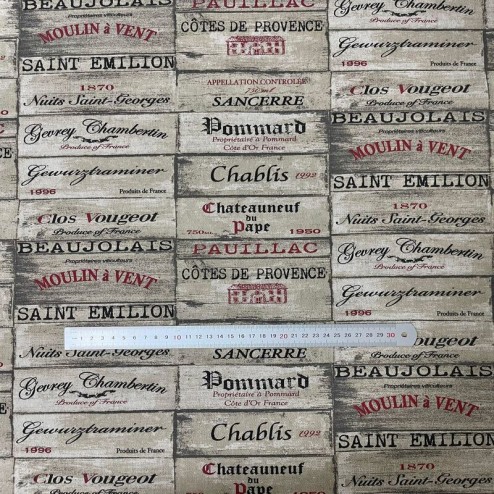 Propriétaires viticulteurs
MOULIN à VENT
SAINT EMILION
1870
Nuits Saint-Georges
Gevrey Chambertin
Produce of France
Gewurztraminer
1996 Produits de France
Clos Vougeot
Produce of France
BEAUJOLAIS
Propriétaires viticulteurs
MOULIN à VENT
Nuits Saint-Georges
Gevrey Chambertin
Produce of France
Gewurztraminer
1996 Produits de France
Clos Vougeot
Produce of France
BEAUJOLAIS
PAUILLAC
CÔTES DE PROVENCE
APPELLATION CONTROLÉE
750 ml
SANCERRE
Pommard
Propriétaire à Pommard
Côte d'Or France
Chablis 1992
Chateauneuf
du
750ml Pape 1950
PAUILLAC
CÔTES DE PROVENCE
1 2 3 4 5 6 7 8 9 10 11 12 13 14 15 16 17 18 19 20 21 22 23 24 25 26 27 28 29 30
SANCERRE
Pommard
Propriétaire à Pommard
Côte d'Or France
Chablis 1992
Chateauneuf
du
Pape
Gevrey Chambertin
Produce of France
Gewurztraminer
1996 Produits de France
Clos Vougeot
Produce of France
BEAUJOLAIS
Propriétaires viticulteurs
MOULIN à VENT
SAINT EMILION
1870
Nuits Saint-Georges
Gevrey Chambertin
Produce of France
Gewurztraminer
1996 Produits de France
Produce of France
BEAUJOLAIS
Propriétaires viticulteurs
MOULIN à VENT
SAINT EMILION
1870
Nuits Saint-Georges